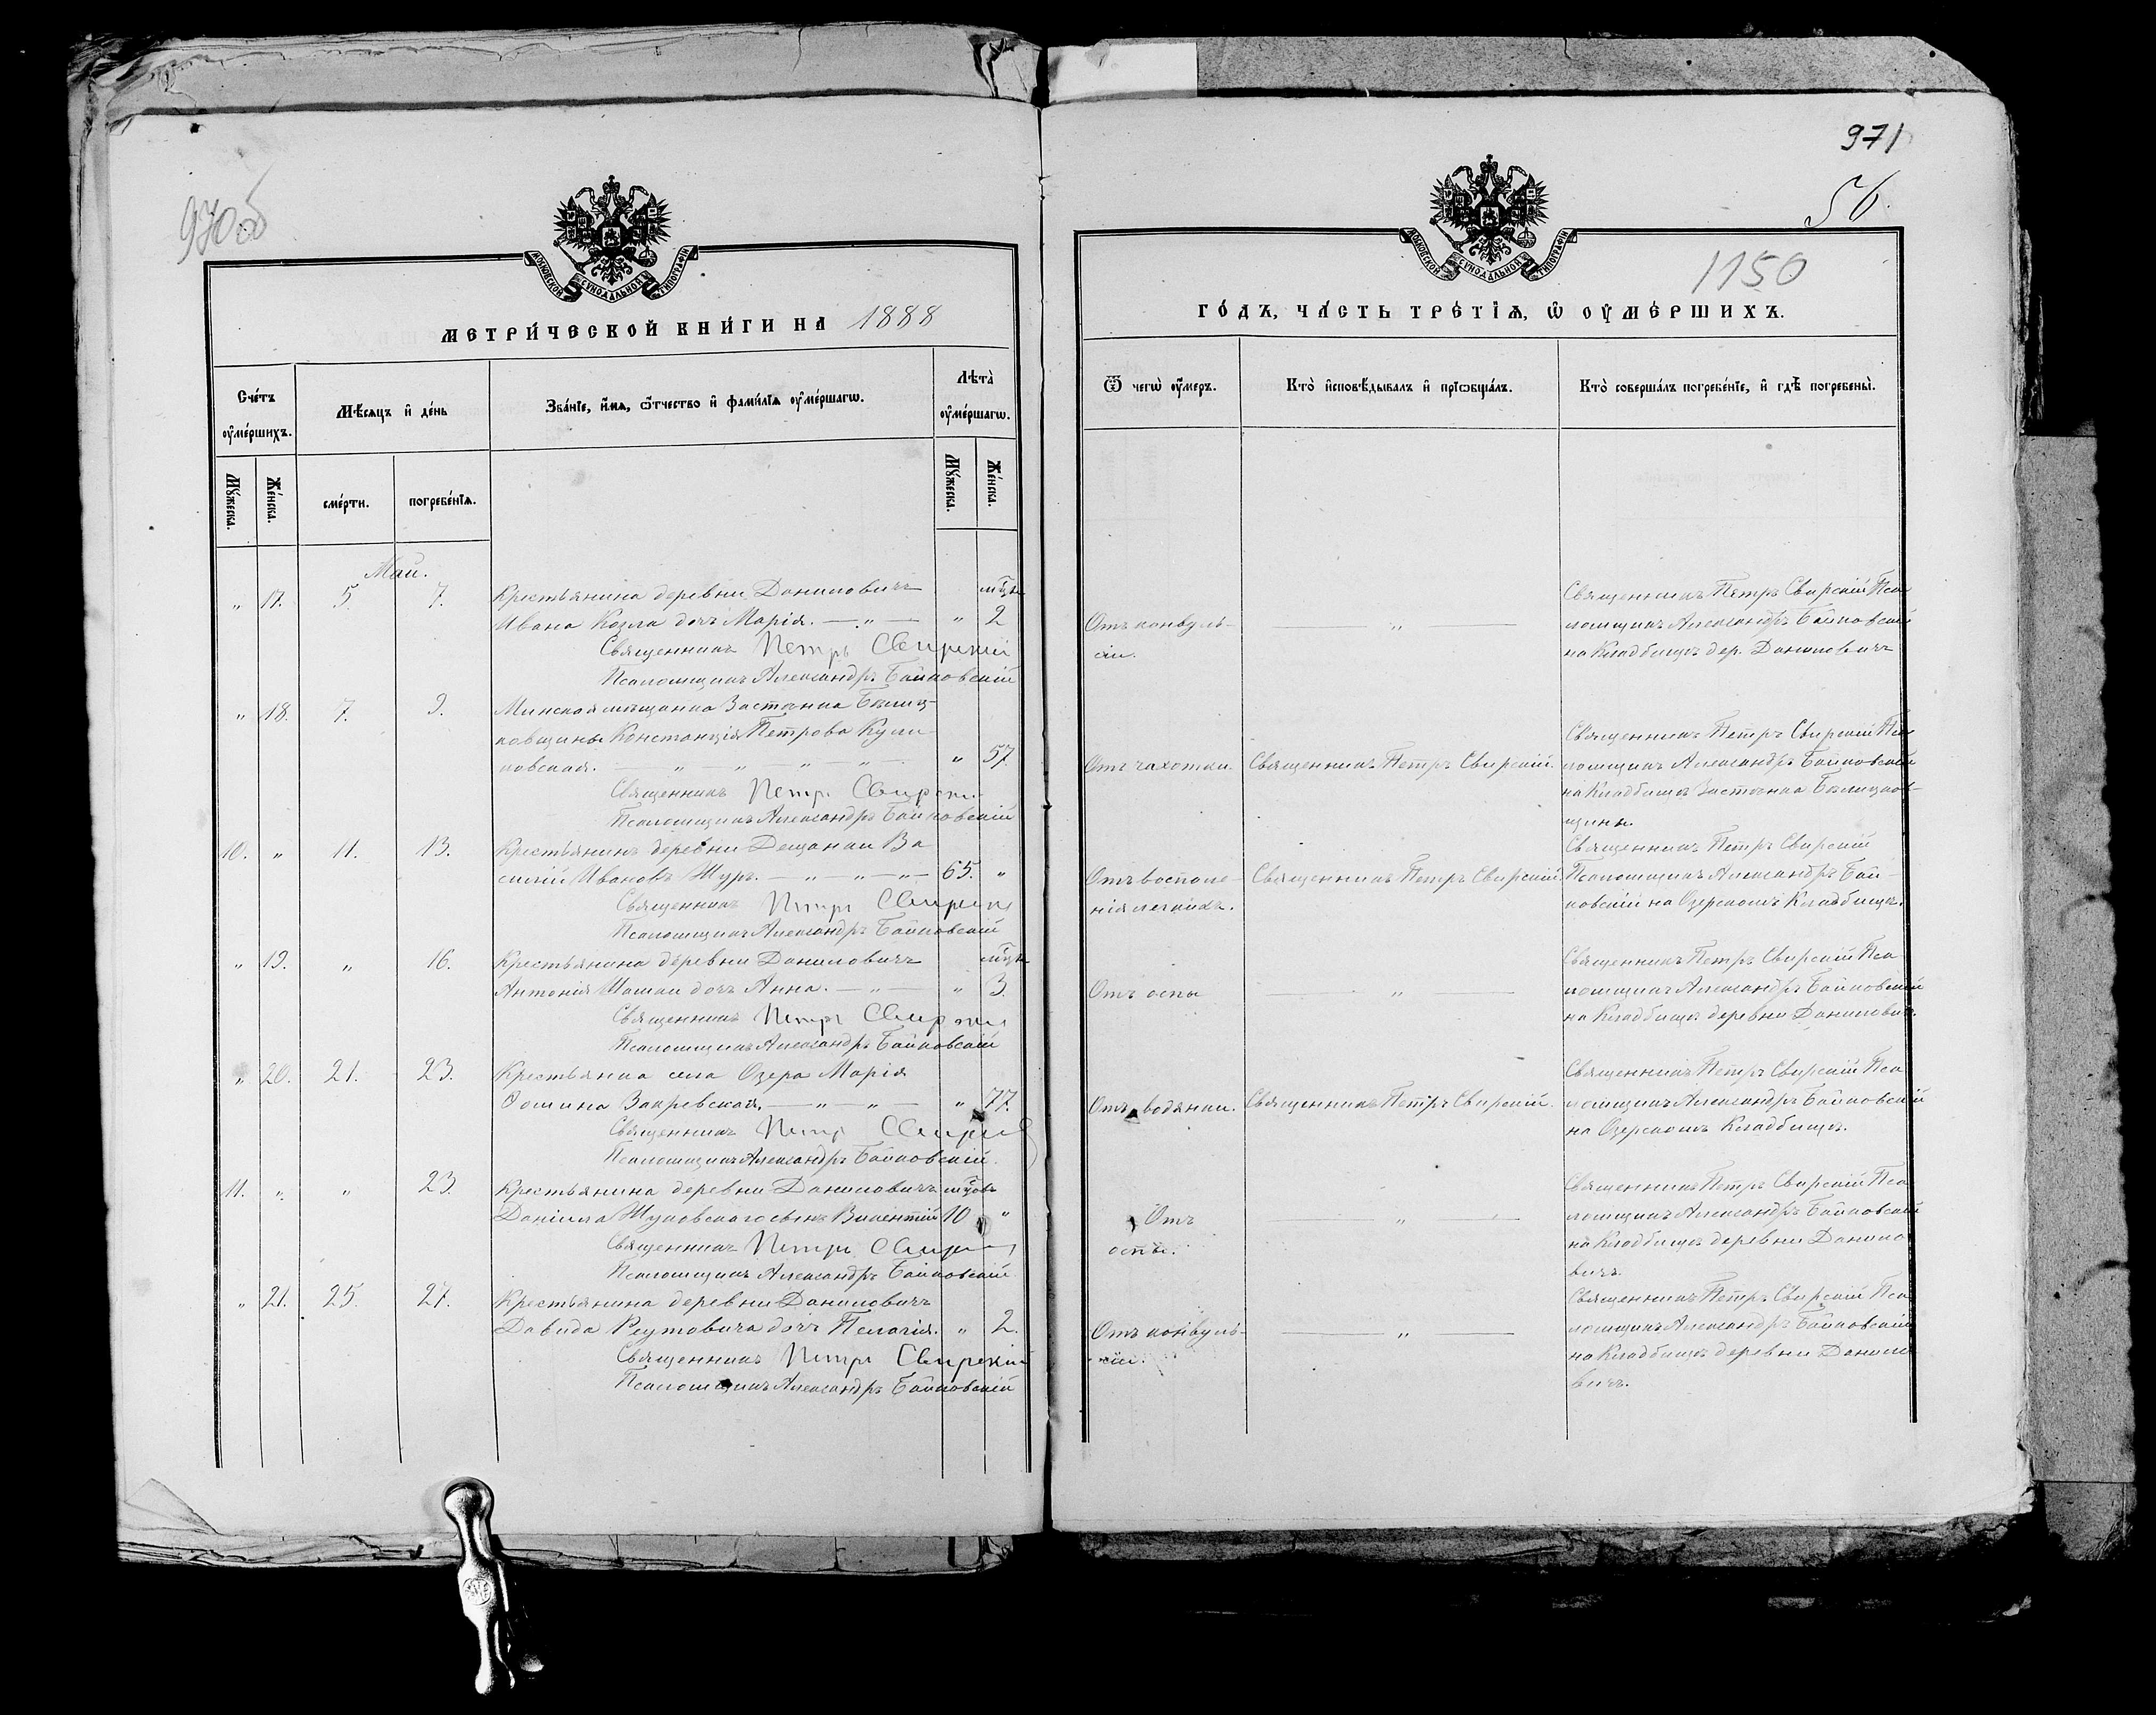 930об
МОСКОВСКОЙ СѴНОДАЛЬНОЙ ТИПОГРАФІИ
МЕТРИ́ЧЕСКОЙ КНИ́ГИ НА 1888
Сче́тъ ᲂу҆ме́ршихъ.
Мѣ́сяцъ и҆ де́нь
Зва́нїе, и҆́мѧ, ѻ҆́тчество и҆ фамилїѧ ᲂу҆ме́ршагѡ.
Лѣ́та ᲂу҆ме́ршагѡ.
Мꙋ́жеска.
Же́нска.
сме́рти.
погребе́нїѧ.
Мꙋ́жеска.
Же́нска.
Май.
" 17. 5. 7. Крестьянина деревни Даниловичъ мѣц.
Ивана Козла дочь Марія. — " — " 2
Священникъ Петръ Свирскій
Псаломщикъ Александръ Байковскій
" 18. 7. 9. Минская мѣщанка Застѣнка Бѣлиц-
ковщины Констанція Петрова Кули
ковская. — " " " " — " 57
Священникъ Петръ Свирскій
Псаломщикъ Александръ Байковскій
10. " 11. 13. Крестьянинъ деревни Дещанки Ва
силій Ивановъ Шуръ. — " — " — " — 65. "
Священникъ Петръ Свирскій
Псаломщикъ Александръ Байковскій
" 19. " 16. Крестьянина деревни Даниловичъ мѣц.
Антонія Шашки дочь Анна. — " — " 3.
Священникъ Петръ Свирскій
Псаломщикъ Александръ Байковскій
" 20. 21. 23. Крестьянка села Озера Марія
Ѳомина Закревская. — " — " — " 77.
Священникъ Петръ Свирскій
Псаломщикъ Александръ Байковскій.
11. " " 23. Крестьянина деревни Даниловичъ мѣцовъ
Даніила Жуковскаго сынъ Викентій 10 "
Священникъ Петръ Свирскій
Псаломщикъ Александръ Байковскій
" 21. 25. 27. Крестьянина деревни Даниловичъ
Давида Реутовича дочь Пелагія. " 2.
Священникъ Петръ Свирскій
Псаломщикъ Александръ Байковскій
971
56.
1150
МОСКОВСКОЙ СѴНОДАЛЬНОЙ ТИПОГРАФІИ
ГО́ДЪ, ЧА́СТЬ ТРЕ́ТІѦ, Ѡ҆ ОУ҆МЕ́РШИХЪ.
Ѿ чегѡ̀ ᲂу҆́меръ.
Кто̀ и҆сповѣ́дывалъ и҆ прїѡбща́лъ.
Кто̀ соверша́лъ погребе́нїе, и҆ гдѣ̀ погребены̀.
Священникъ Петръ Свирскій Пса
Отъ конвуль- — " — ломщикъ Александръ Байковскій
сіи. на Кладбищѣ дер. Даниловичъ
Священникъ Петръ Свирскій Пса
Отъ чахотки. Священникъ Петръ Свирскій. ломщикъ Александръ Байковскій
на Кладбищѣ Застѣнка Бѣлицков-
щины.
Священникъ Петръ Свирскій
Отъ воспале- Священникъ Петръ Свирскій. Псаломщикъ Александръ Бай-
нія легкихъ. ковскій на Озерскомъ Кладбищѣ.
Священникъ Петръ Свирскій Пса
Отъ оспы — " — ломщикъ Александръ Байковскій
на Кладбищѣ деревни Даниловичъ.
Священникъ Петръ Свирскій Пса
Отъ водянки. Священникъ Петръ Свирскій. ломщикъ Александръ Байковскій
на Озерскомъ Кладбищѣ.
Священникъ Петръ Свирскій Пса
Отъ — " — ломщикъ Александръ Байковскій
оспы. на Кладбищѣ деревни Данило
вичъ.
Священникъ Петръ Свирскій Пса
Отъ конвуль- — " — ломщикъ Александръ Байковскій
сіи. на Кладбищѣ деревни Данило
вичъ.